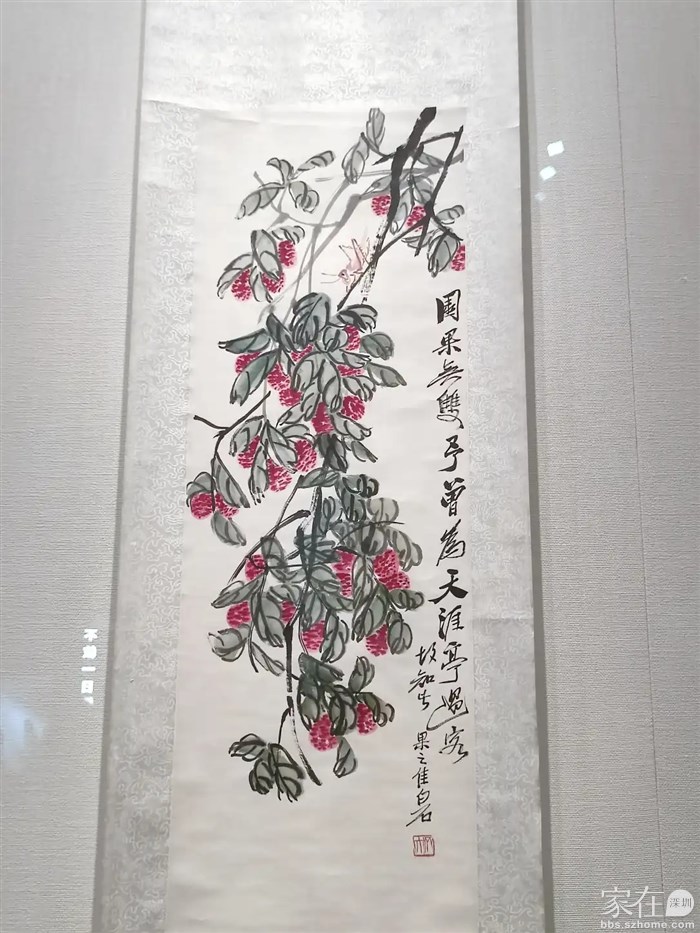 園果無雙予曾為天涯亭過客
故知此果之佳白石
不教一日
家在深圳
bbs.szhome.com